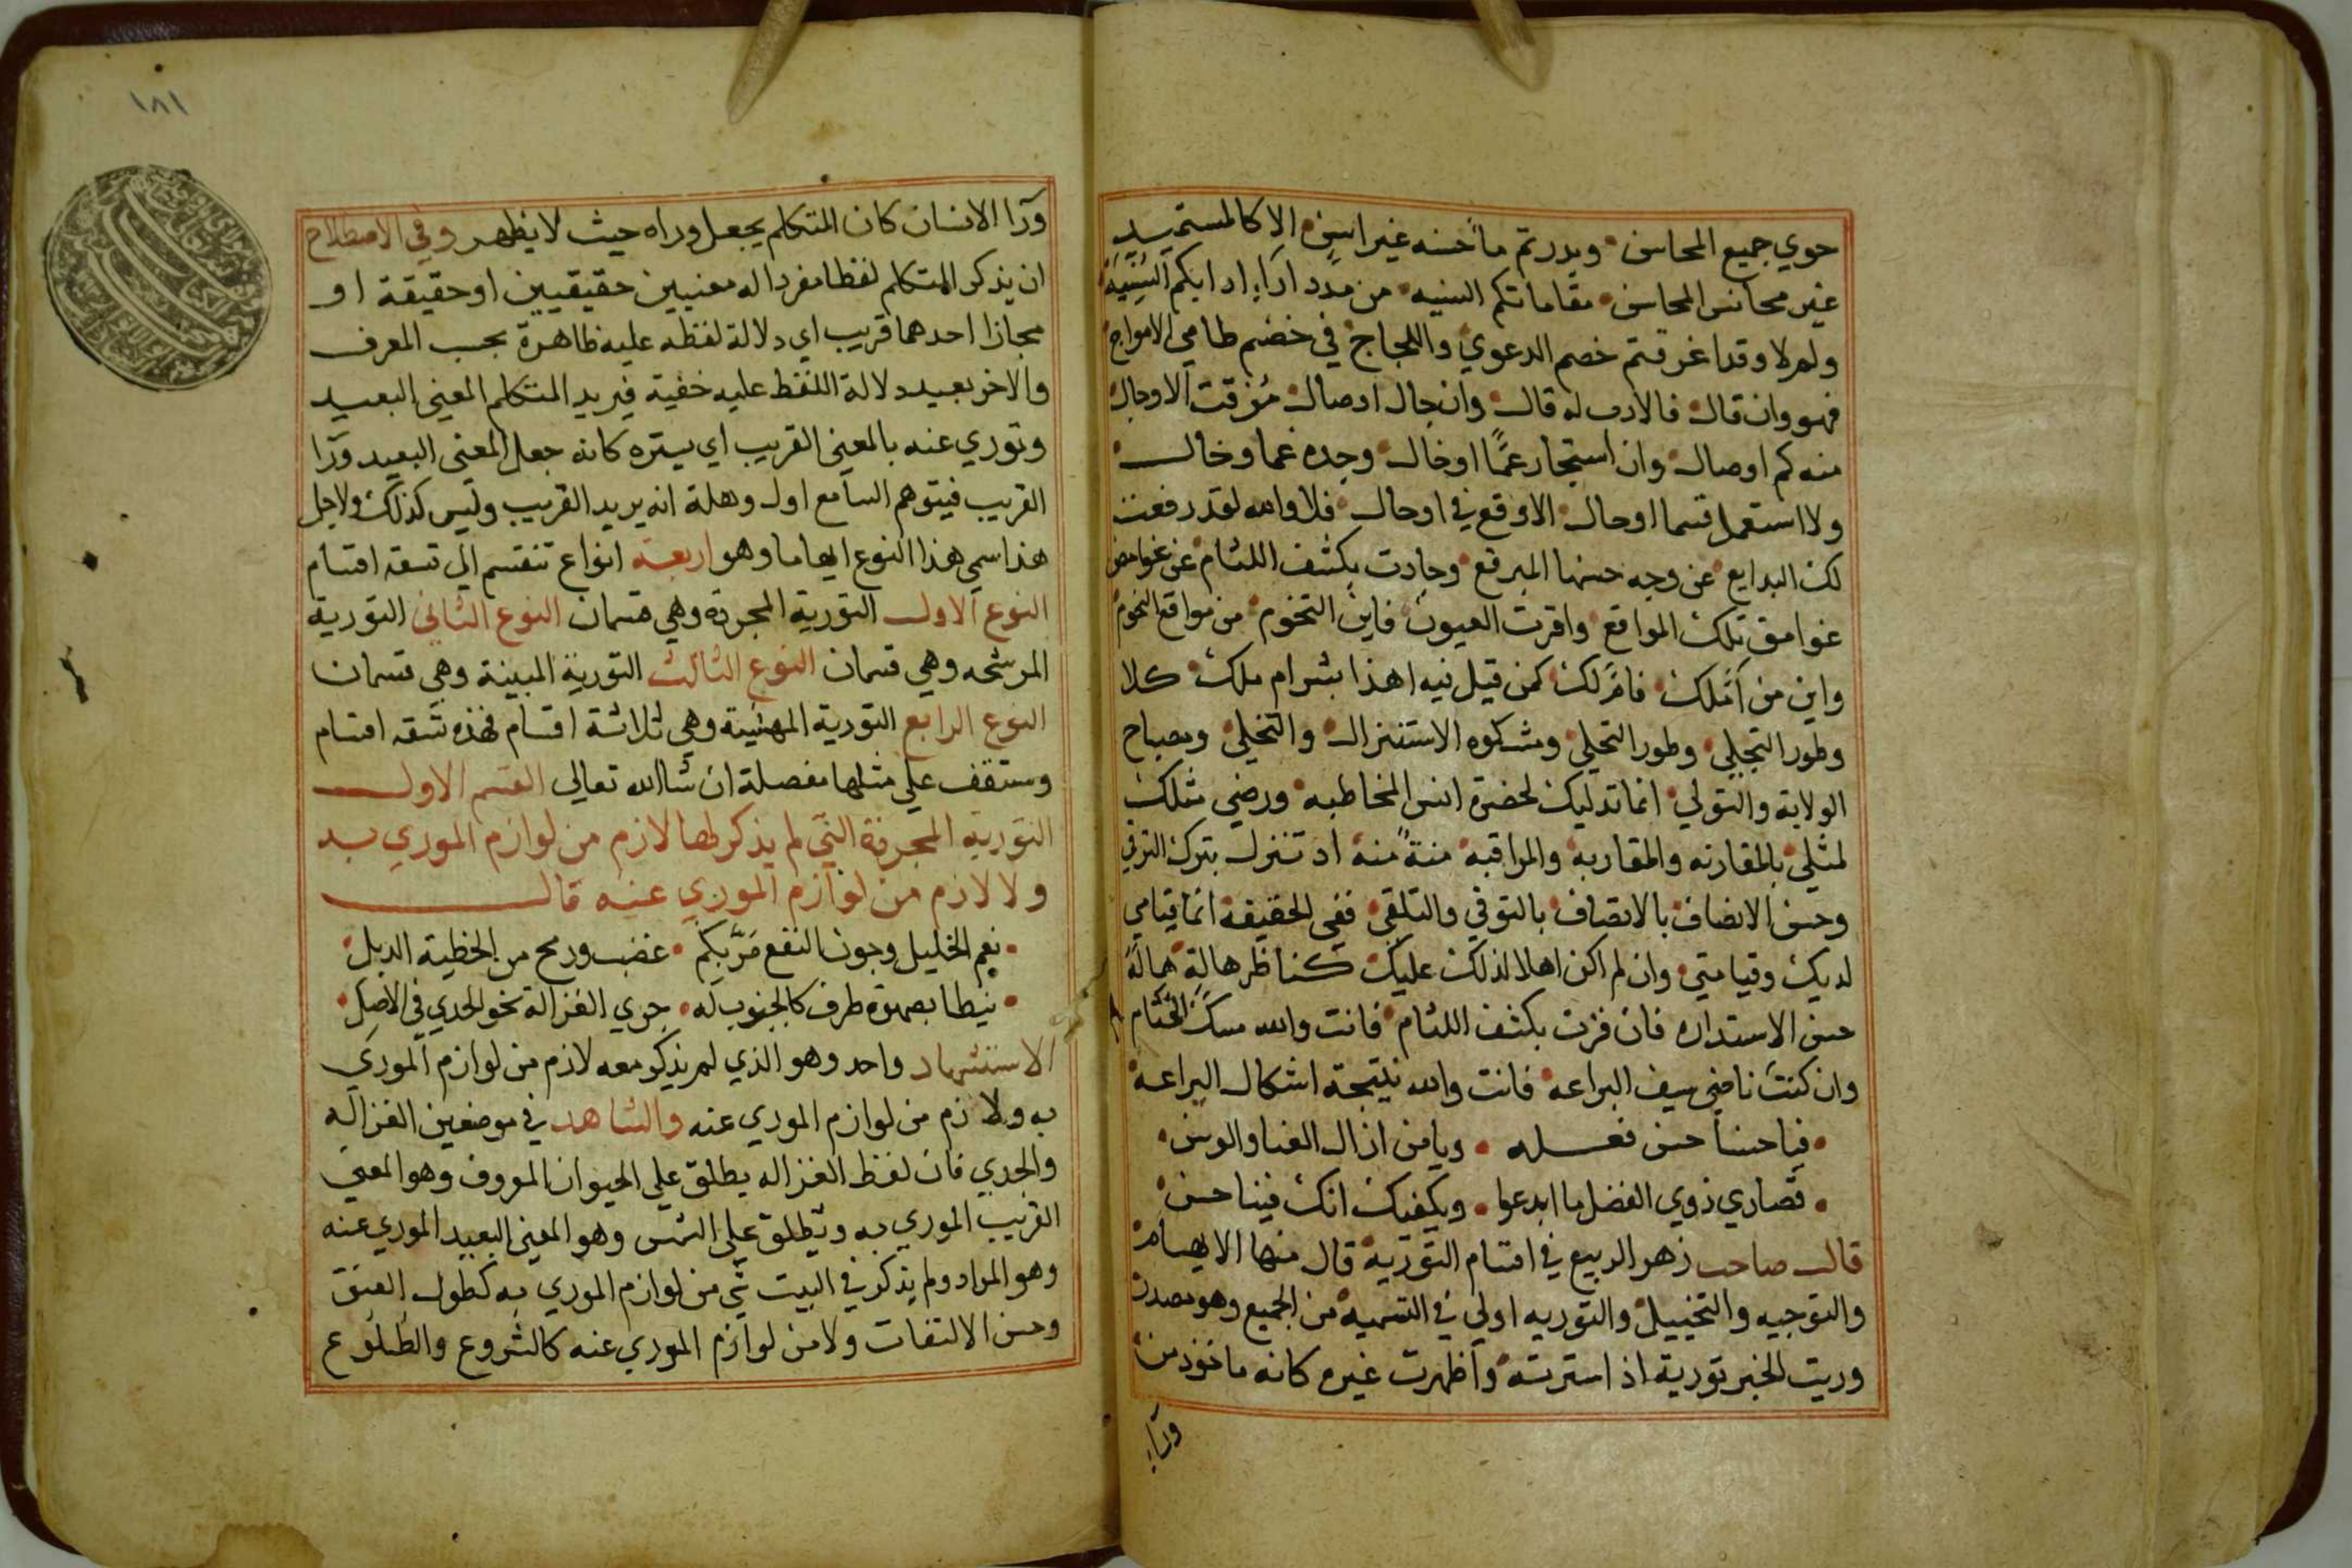 حوي جميع المحاسن ويدرتم ماخسنه غير اسن الا كالمستميد
غير محانس المحاسن مقاماتكم السنيه من مدد اراء ادابكم السنية
ولم لا وقد اغرقتم خصم الدعوي واللجاج في خضم طامي الامواج
فهو وان قال فالادب له قال وان جال اوصال مؤقت الاوجال
منه كم اوصال وان استجار عما اوخال وجده غما وخال
ولا استعمل قسما اوحال الا وقع في اوحال فلا والله لقد رفعت
لك البدايع عن وجه حسنها المبرقع وجادت بكشف اللثام عن غوامض
غوامق تلك المواقع واقرت العيون فاين التخوم من مواقع النجوم
واين من املك فامر لك كمن قيل فيه اهذا بشر ام ملك كلا
وطور التجلي وطور التحلي ومشكوه الاستنزال والتخلي ومصباح
الولاية والتولي انما تدليك لحضرة انس المخاطبه ورضي مثلك
لمثلي بالمقارنه والمقاربه والمراقبه منة منه اد تنزل بترك الترقي
وحسن الانصاف بالاتصاف بالتوقي والتلقي ففي الحقيقة انما قيامي
لديك وقيامتي وان لم اكن اهلا لذلك عليك كناظر هالة هاله
حسن الاستداره فان فزت بكشف اللثام فانت والله مسك الختام
وان كنت ناضي سيف البراعه فانت والله نتيجة اشكال البراعه
فيا حسنا حسن فعله ويا من ازال العنا والوسن
قصاري ذوي الفضل ما ابدعوا ويكفيك انك فينا حسن
قال صاحب زهر الربيع في اقسام التورية قال منها الايهام
والتوجيه والتخييل والتوريه اولي في التسميه من الجميع وهو مصدر
وريت الخبر تورية اذ استرته واظهرت غيره كانه ماخوذ من
وراء
١٨١
ورا الانسان كان المتكلم يجعل وراه حيث لا يظهر وفي الاصطلاح
ان يذكر المتكلم لفظا مفردا له معنيين حقيقيين او حقيقة او
مجازا احدهما قريب اي دلالة لفظه عليه ظاهرة بحسب العرف
والاخر بعيد دلالة اللفظ عليه خفية فيريد المتكلم المعني البعيد
وتوري عنه بالمعني القريب اي يستره كانه جعل المعني البعيد ورا
القريب فيتوهم السامع اول وهلة انه يريد القريب وليس كذلك ولاجل
هذا سمي هذا النوع ايهاما وهو اربعة انواع تنقسم الي تسعة اقسام
النوع الاول التورية المجردة وهي قسمان النوع الثاني التورية
المرشحه وهي قسمان النوع الثالث التورية المبينة وهي قسمان
النوع الرابع التورية المهيئة وهي ثلاثة اقسام فهذه تسعه اقسام
وستقف علي مثلها مفصلة ان شا الله تعالي القسم الاول
التورية المجردة التي لم يذكر لها لازم من لوازم الموري به
ولا لازم من لوازم الموري عنه قال
نعم الخليل وجون النقع مر بكم غضب ورمح من الخطية الدبل
نيطا بصهوة طرف كالجنوب له جري الغزالة نحو الجدي في الاصل
الاستشهاد واحد وهو الذي لم يذكر معه لازم من لوازم الموري
به ولا لازم من لوازم الموري عنه والشاهد في موضعين الغزاله
والجدي فان لفظ الغزاله يطلق علي الحيوان المعروف وهو المعني
القريب الموري به ويطلق علي الشمس وهو المعني البعيد الموري عنه
وهو المراد ولم يذكر في البيت شي من لوازم الموري به كطول العنق
وحسن الالتفات ولا من لوازم الموري عنه كالشروع والطلوع